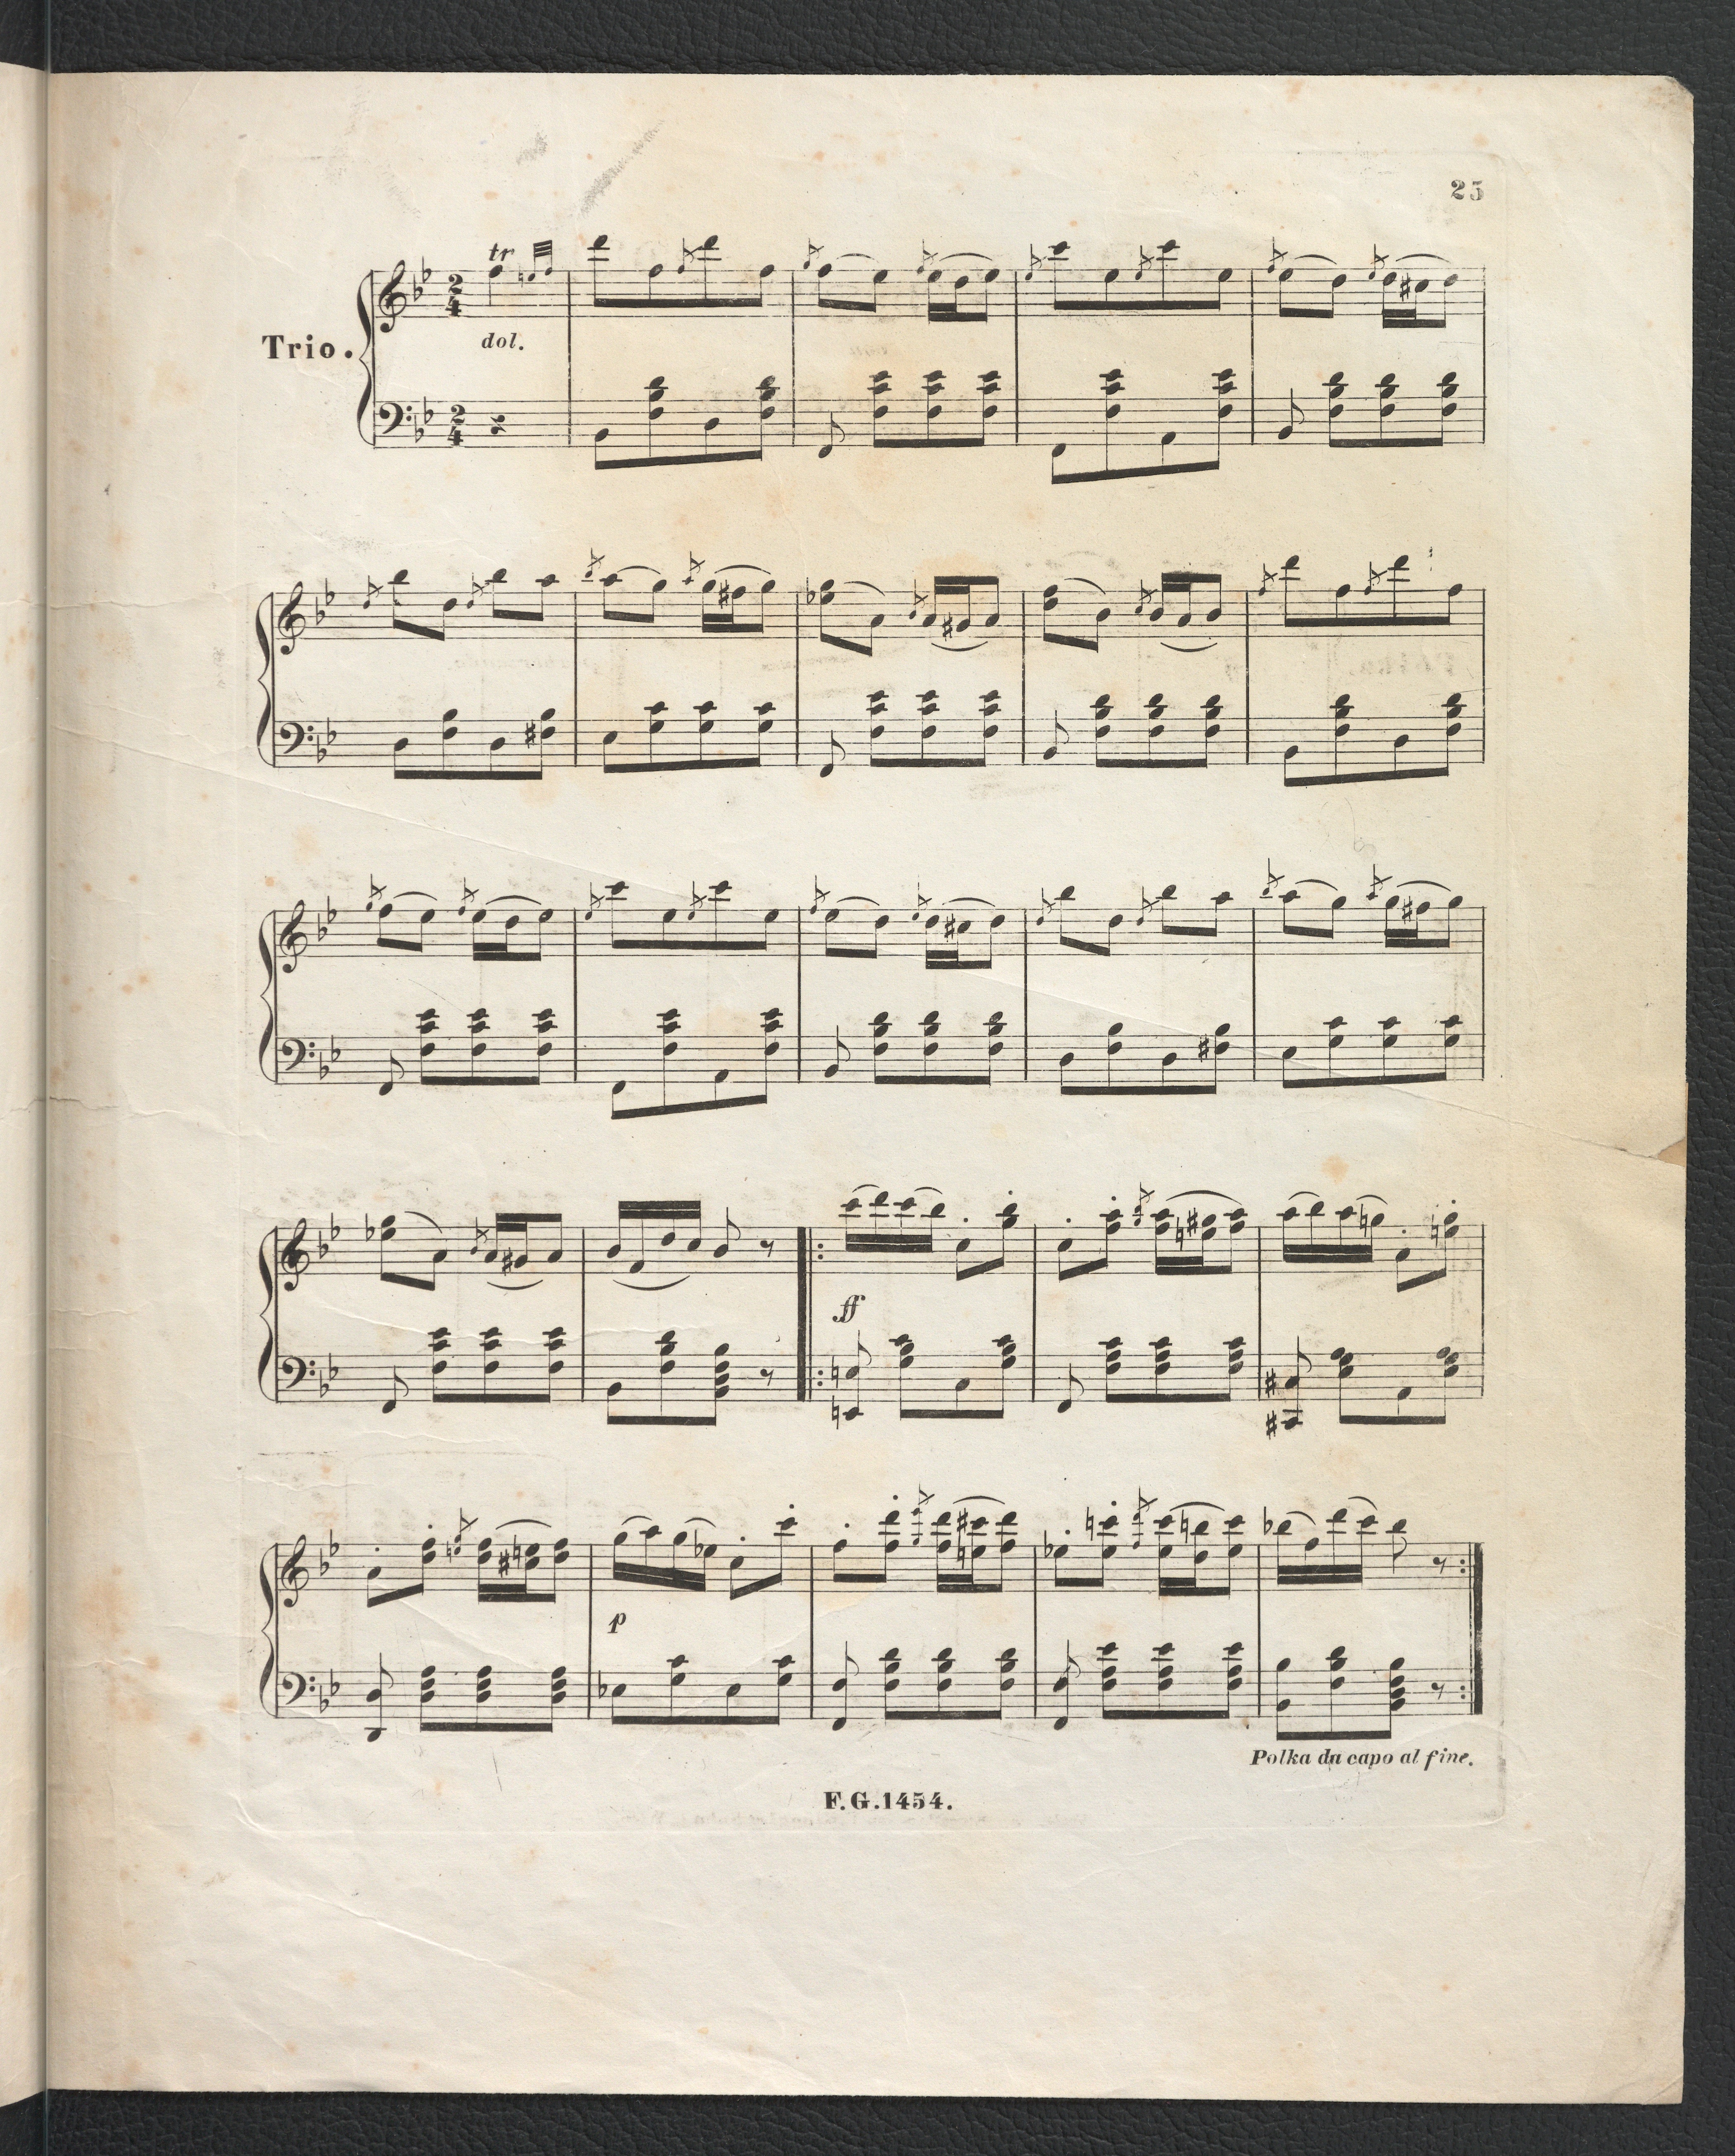 25
tr
2
4
dol.
Trio.
2
4
ff
p
Polka da capo al fine.
F.G.1454.